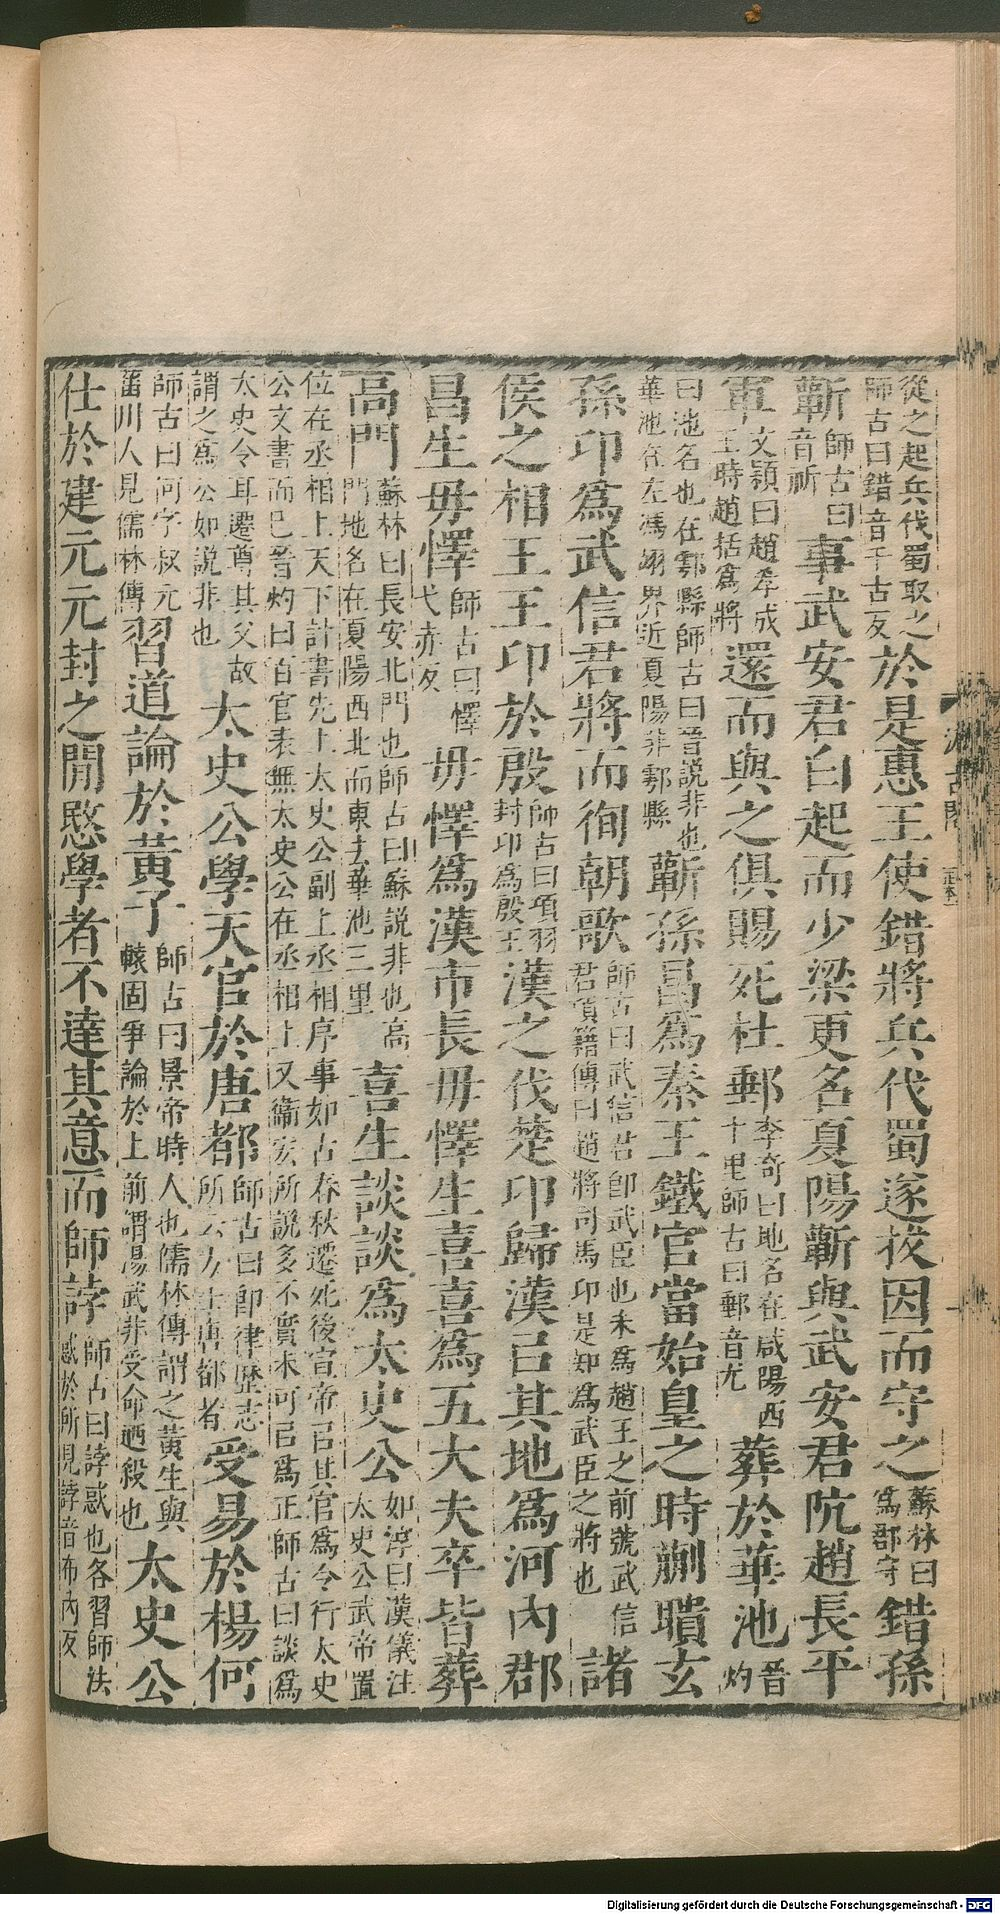 從之起兵伐蜀取之師古曰錯音千古反於是惠王使錯將兵伐蜀遂拔因而守之蘇林曰爲郡守錯孫
蘄師古曰音祈事武安君白起而少梁更名夏陽蘄與武安君阬趙長平
軍文穎曰趙孝成王時趙括爲將還而與之俱賜死杜郵李奇曰地名在咸陽西十里師古曰郵音尤葬於華池晉灼
曰池名也在鄠縣師古曰晉說非也華池在左馮翊界近夏陽非鄠縣蘄孫昌爲秦王鐵官當始皇之時蒯聵玄
孫卬爲武信君將而徇朝歌師古曰武信君卽武臣也未爲趙王之前號武信君項籍傳曰趙將司馬卬是知爲武臣之將也諸
侯之相王王卬於殷師古曰項羽封卬爲殷王漢之伐楚卬歸漢㠯其地爲河內郡
昌生毋懌師古曰懌弋赤反毋懌爲漢市長毋懌生喜喜爲五大夫卒皆葬
高門蘇林曰長安北門也師古曰蘇說非也高門地名在夏陽西北而東去華池三里喜生談談爲太史公如淳曰漢儀注太史公武帝置
位在丞相上天下計書先上太史公副上丞相序事如古春秋遷死後宣帝㠯其官爲令行太史公文書而已晉灼曰百官表無太史公在丞相上又衞宏所說多不實未可㠯爲正師古曰談爲
太史令耳遷尊其父故謂之爲公如說非也太史公學天官於唐都師古曰卽律歷志所云方士唐都者受易於楊何
師古曰何字叔元菑川人見儒林傳習道論於黃子師古曰景帝時人也儒林傳謂之黃生與轅固爭論於上前謂湯武非受命廼殺也太史公
仕於建元元封之閒愍學者不達其意而師誖師古曰誖惑也各習師法惑於所見誖音布內反
汲古閣
Digitalisierung gefördert durch die Deutsche Forschungsgemeinschaft - DFG